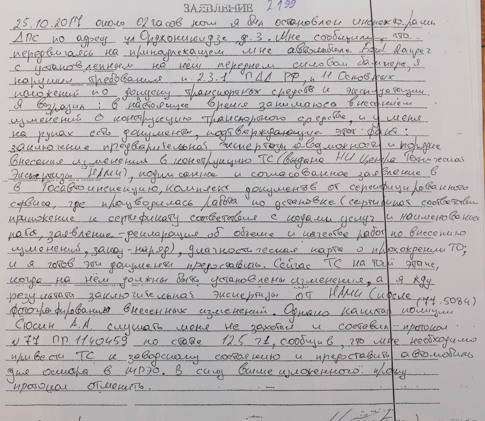 ЗАЯВЛЕНИЕ 2199
25.10.2017 около 02 часов ночи я был остановлен инспекторами
ДПС по адресу ул Орджоникидзе д.3. Мне сообщили, что
передвигаясь на принадлежащем мне автомобиле Форд Рейнджер
с установленным на нём переднем силовом бампере, я
нарушил требования п. 2.3.1 ПДД РФ, п 11 Основных
положений по допуску транспортных средств к эксплуатации.
Я возразил: в настоящее время занимаюсь внесением
изменений в конструкцию транспортного средства, и у меня
на руках есть документы, подтверждающие этот факт:
заключение предварительной экспертизы о возможности и порядке
внесения изменения в конструкцию ТС (выдано НИ Центра Техническая
Экспертиза НАМИ), подписанное и согласованное заявление в
в Госавтоинспекцию, комплект документов от сертифицированного
сервиса, где производилась работа по установке (сертификат соответствия
приложение к сертификату соответствия с кодами услуг и наименование
работ, заявление-декларация об объеме и качестве работ по внесению
изменений, заказ-наряд), диагностическая карта о прохождении ТО,
и я готов эти документы предоставить. Сейчас ТС на том этапе,
когда на нём должны быть установлены изменения, а я жду
результаты заключительная экспертиза от НАМИ (после (77.5084)
фотографирования внесенных изменений. Однако капитан полиции
Сюсин А.А. слушать меня не захотел и составил протокол
№77 ПП 1140459 по статье 12.5 ч1, сообщив, что мне необходимо
привести ТС к заводскому состоянию и предоставить автомобиль
для осмотра в МРЭО. В силу выше изложенного прошу
протокол отменить.